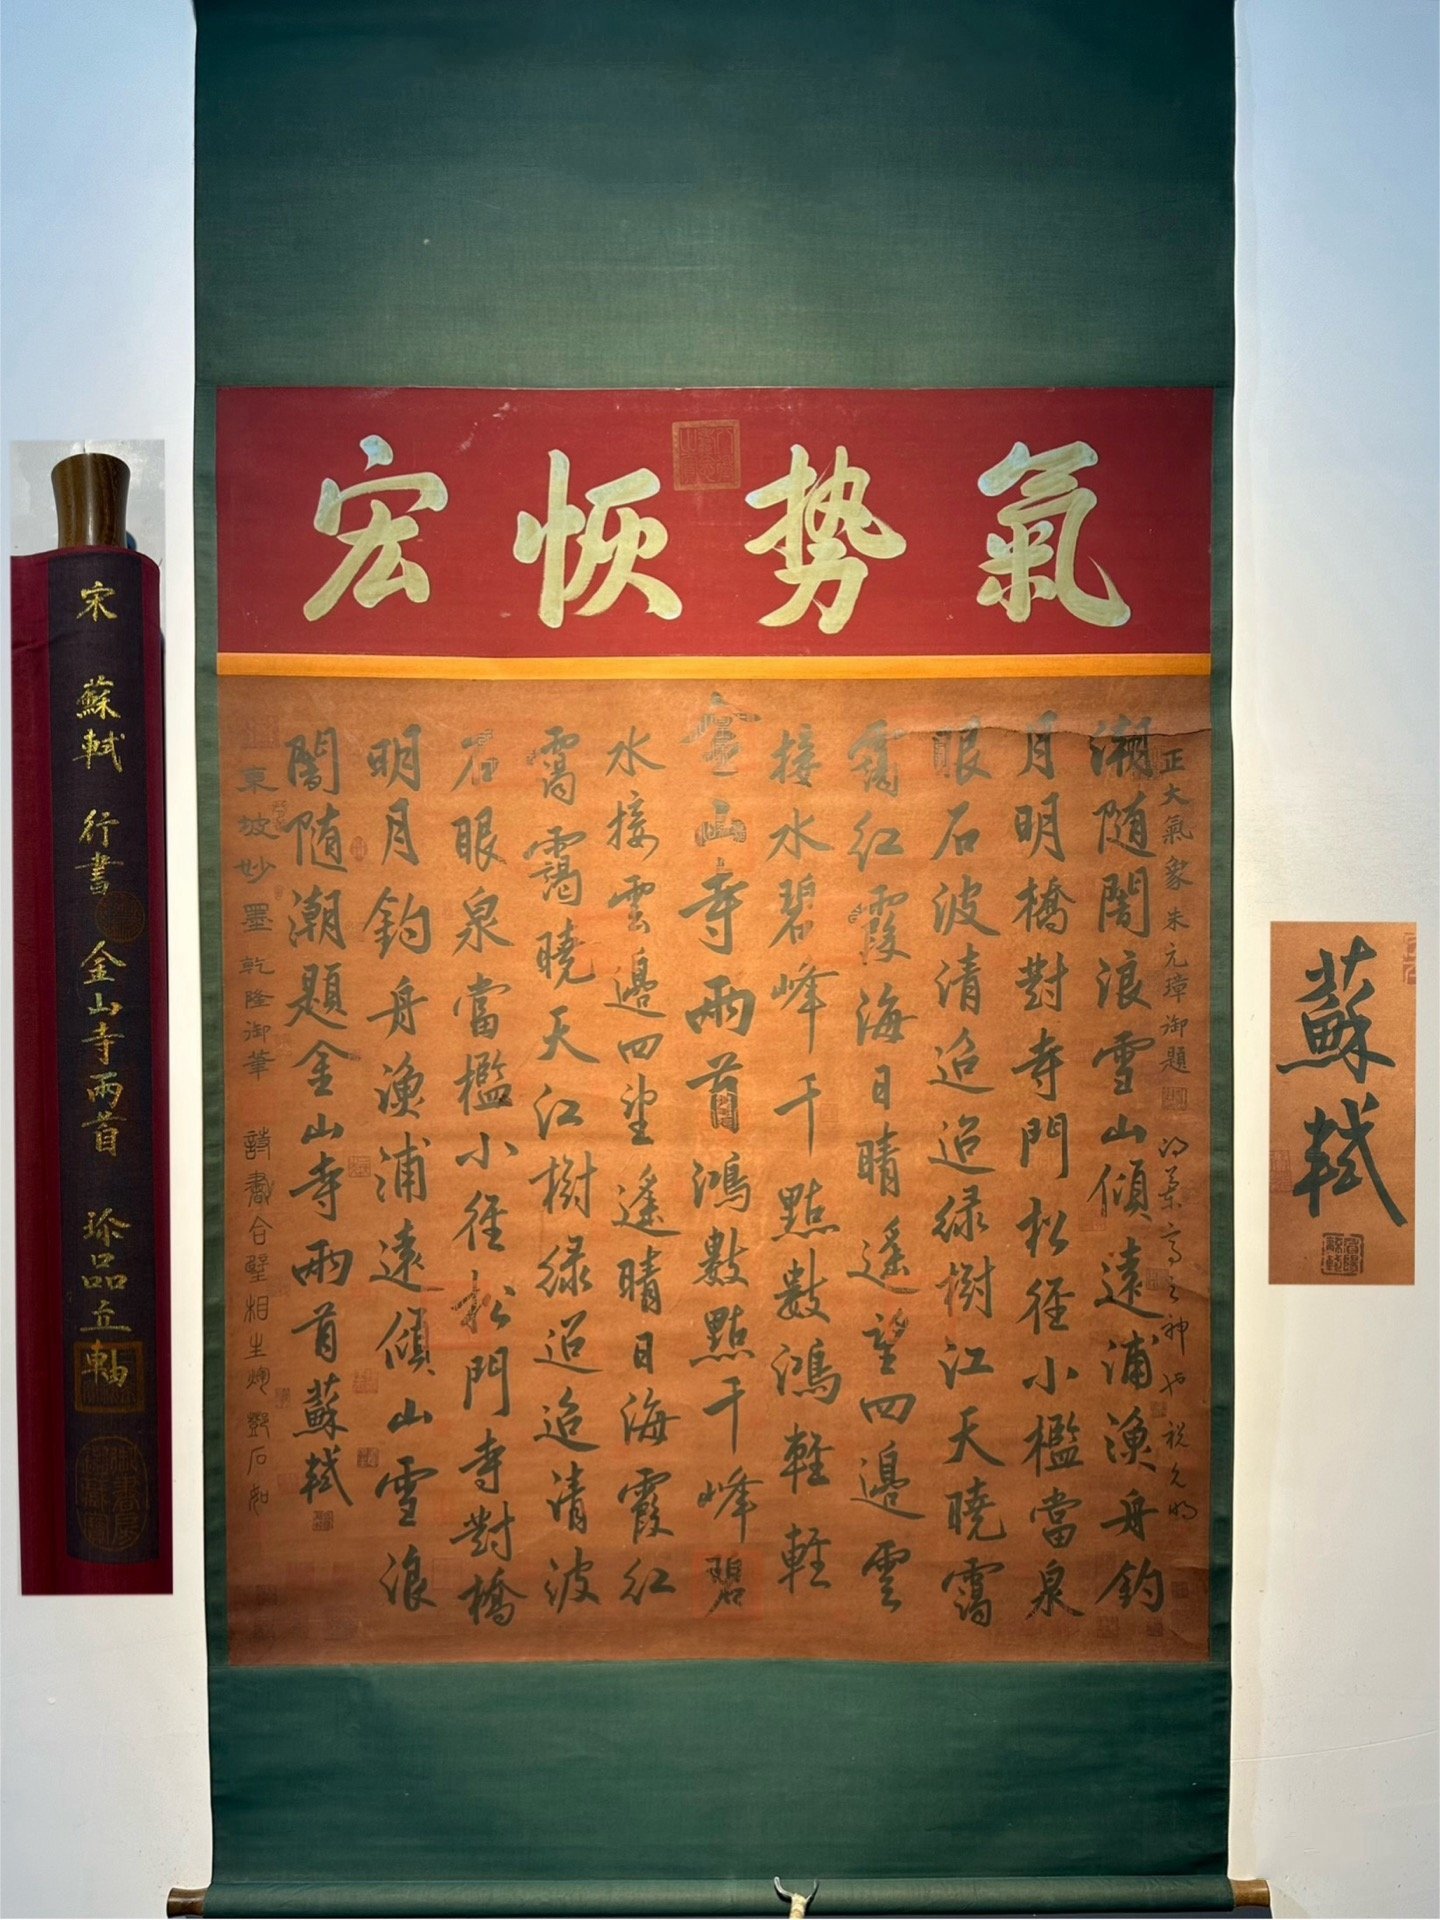 氣勢恢宏
正大氣象 朱元璋御題
祝允明
潮随闇浪雪山傾遠浦漁舟釣
月明橋對寺門松徑小檻當泉
眼石波清迢迢緑樹江天曉靄
靄紅霞海日晴遙望四邉雲
接水碧峰千點數鴻輕輕
金山寺兩首鴻數點千峰碧
水接雲邉四望遙晴日海霞紅
靄靄曉天江樹緑迢迢清波
石眼泉當檻小徑松門寺對橋
明月釣舟漁浦遠傾山雪浪
闇随潮題金山寺兩首蘇軾
東坡妙墨乾隆御筆
詩書合璧相生輝 鄧石如
宋 蘇軾 行書 金山寺兩首 珍品立軸
蘇軾